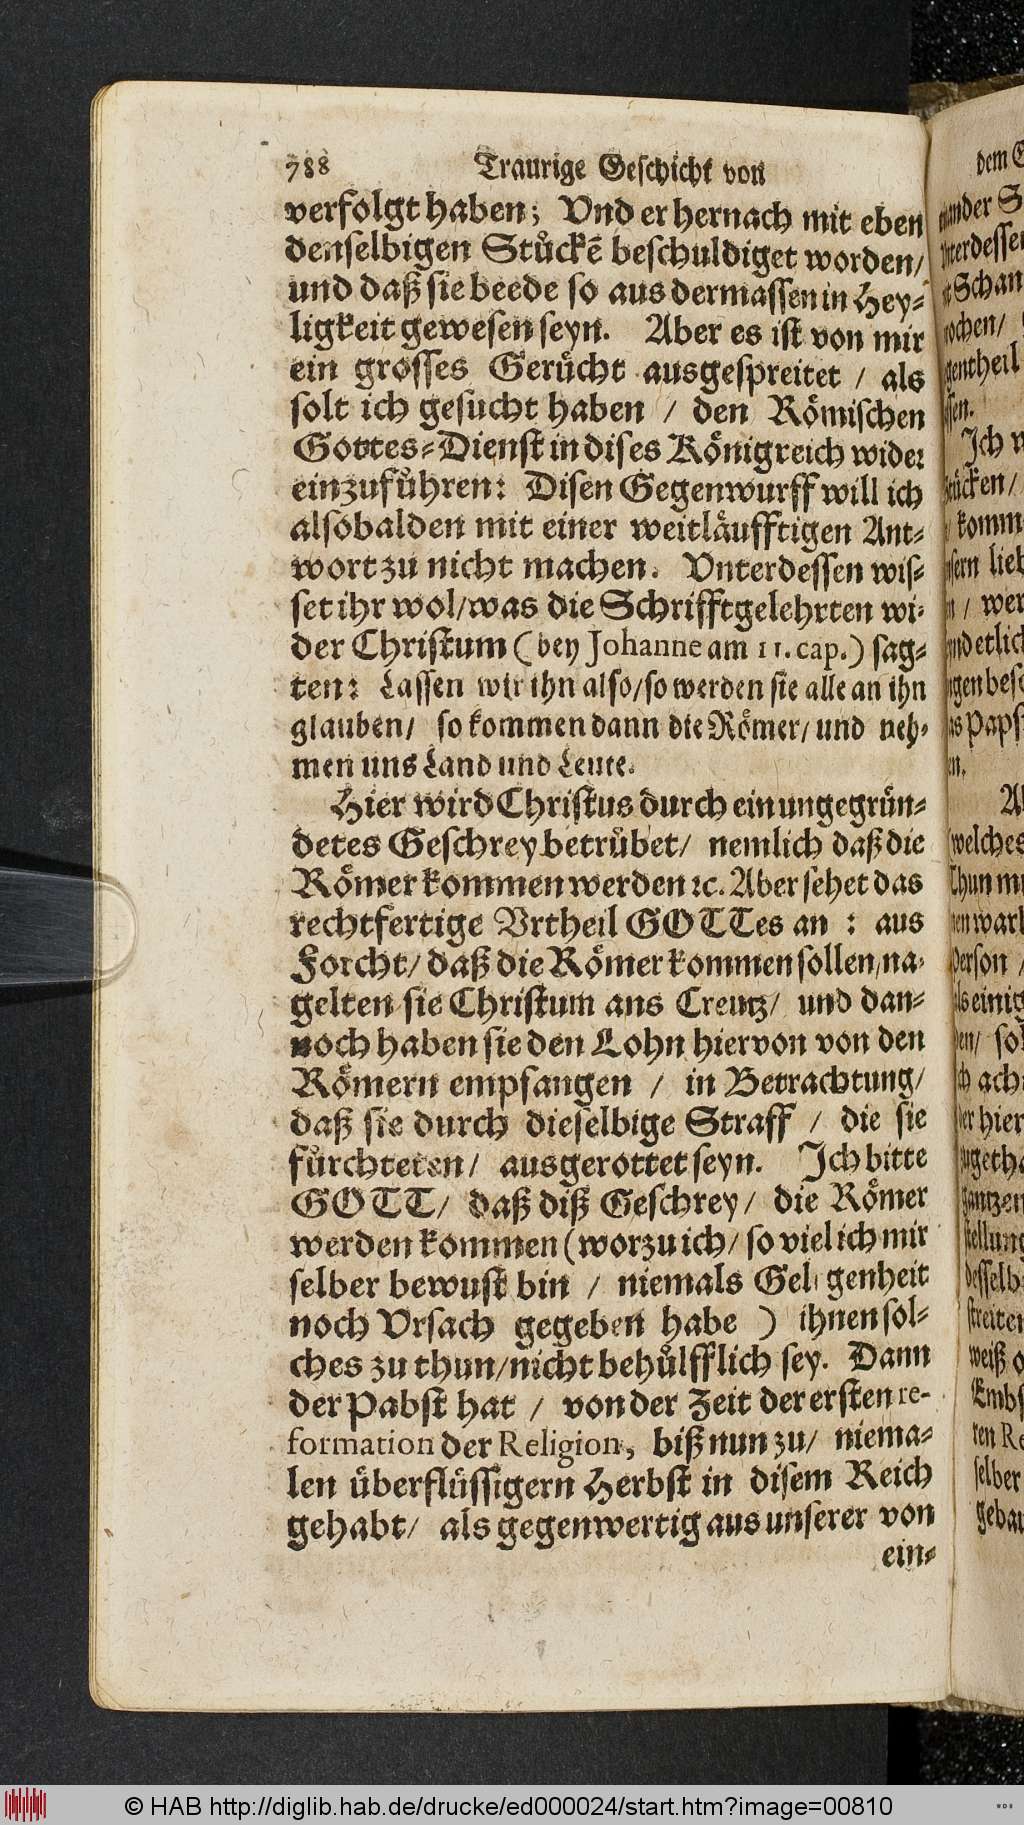 788 Traurige Geschicht von
verfolgt haben; Vnd er hernach mit eben
denselbigen Stůckẽ beschuldiget worden/
und daß sie beede so aus dermassen in Hey-
ligkeit gewesen seyn. Aber es ist von mir
ein grosses Gerůcht ausgespreitet / als
solt ich gesucht haben / den Römischen
Gottes-Dienst in dises Königreich wider
einzufůhren: Disen Gegenwurff will ich
alsobalden mit einer weitläufftigen Ant-
wort zu nicht machen. Vnterdessen wis-
set ihr wol/was die Schrifftgelehrten wi-
der Christum (bey Johanne am 11. cap.) sag-
ten: Lassen wir ihn also/so werden sie alle an ihn
glauben/ so kommen dann die Römer/ und neh-
men uns Land und Leute.
Hier wird Christus durch ein ungegrün-
detes Geschrey betrůbet/ nemlich daß die
Römer kommen werden ꝛc. Aber sehet das
rechtfertige Vrtheil GOTTes an : aus
Forcht/ daß die Römer kommen sollen/na-
gelten sie Christum ans Creutz/ und dan-
noch haben sie den Lohn hiervon von den
Römern empfangen / in Betrachtung/
daß sie durch dieselbige Straff / die sie
fůrchteten/ ausgerottet seyn. Ich bitte
GOTT/ daß diß Geschrey/ die Römer
werden kommen (worzu ich/ so viel ich mir
selber bewust bin / niemals Gelegenheit
noch Vrsach gegeben habe ) ihnen sol-
ches zu thun/nicht behůlfflich sey. Dann
der Pabst hat / von der Zeit der ersten re-
formation der Religion, biß nun zu/ niema-
len überflüssigern Herbst in disem Reich
gehabt/ als gegenwertig aus unserer von
ein-
dem
Ich
kommen/
© HAB http://diglib.hab.de/drucke/ed000024/start.htm?image=00810